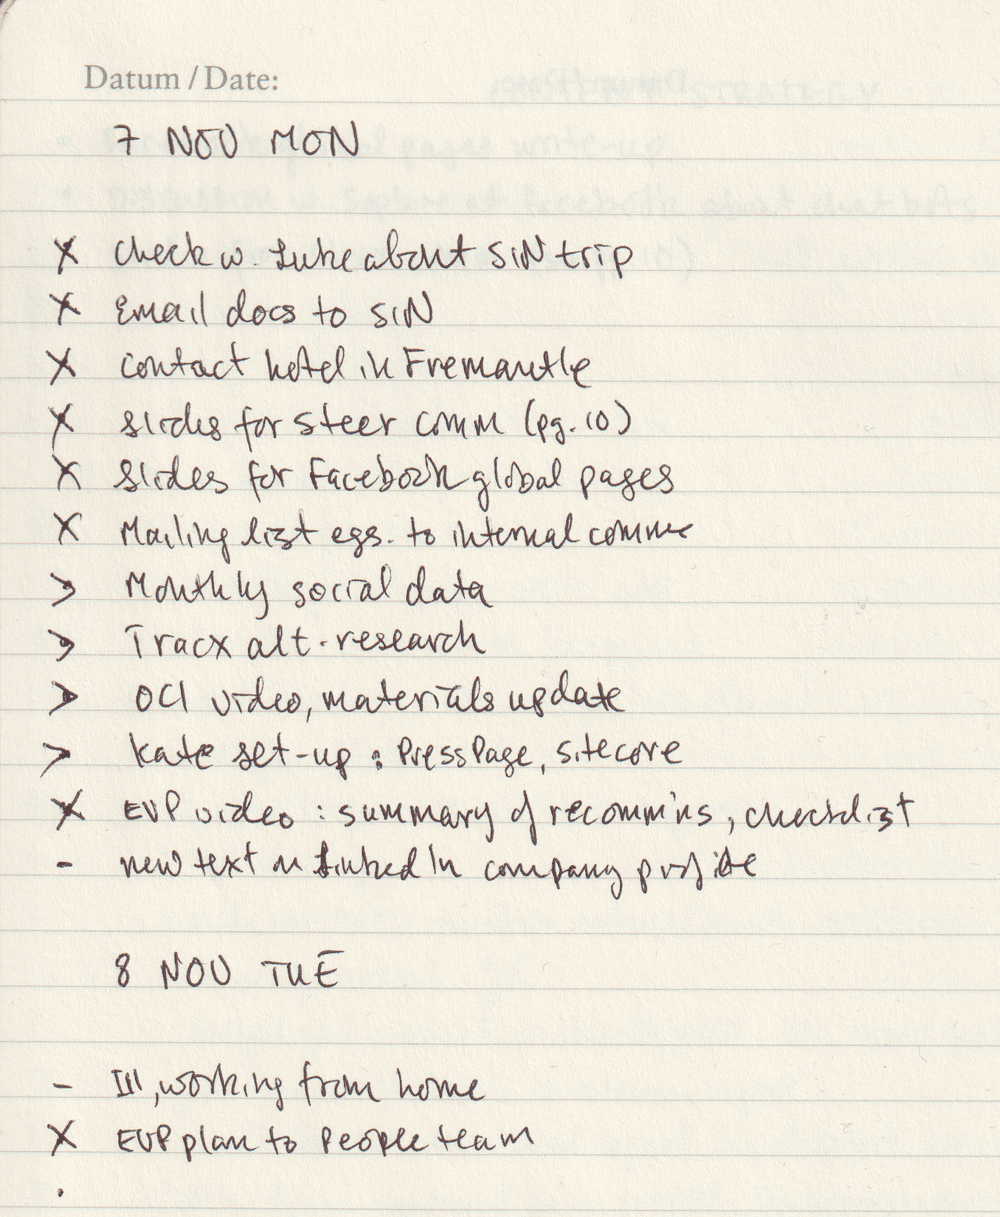 Datum / Date:
7 NOV MON
x check w. Luke about SIN trip
x Email docs to SIN
x contact hotel in Fremantle
x slides for steer comm (pg. 10)
x slides for Facebook global pages
x Mailing list egs. to internal comms
> Monthly social data
> Tracx alt. research
> OCI video, materials update
> Kate set-up : PressPage, sitecore
x EVP video : summary of recomm'ns, checklist
- new text on LinkedIn company profile
8 NOV TUE
- Ill, working from home
x EVP plan to People team
·